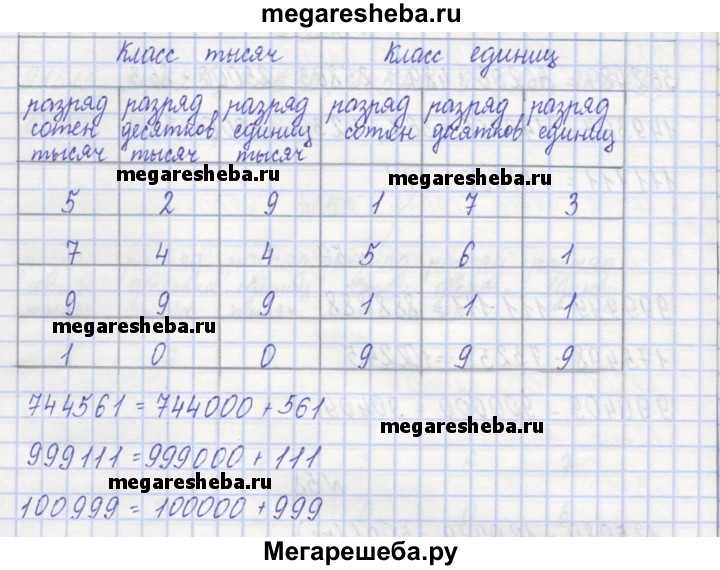 megaresheba.ru
Класс тысяч Класс единиц
разряд разряд разряд разряд разряд разряд
сотен десятков единиц сотен десятков единиц
тысяч тысяч тысяч
megaresheba.ru megaresheba.ru
5 2 9 1 7 3
7 4 4 5 6 1
9 9 9 1 1 1
megaresheba.ru
1 0 0 9 9 9
744561 = 744000 + 561
megaresheba.ru
999111 = 999000 + 111
megaresheba.ru
100999 = 100000 + 999
Мегарешеба.ру